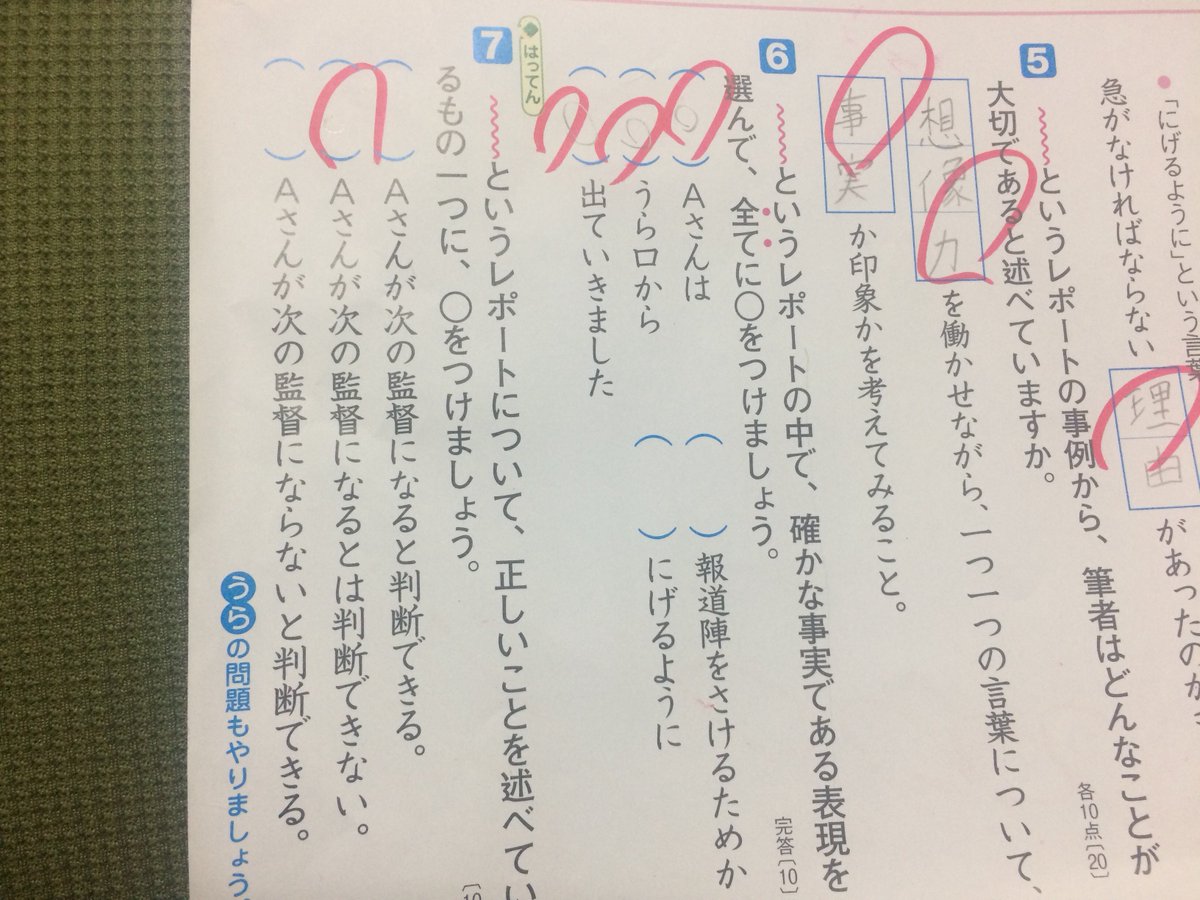 「にげるように」という言葉
急がなければならない
理由
があったのか
5
〰〰というレポートの事例から、筆者はどんなことが
大切であると述べていますか。
各10点〔20〕
想像力
を働かせながら、一つ一つの言葉について、
事実
か印象かを考えてみること。
6
〰〰というレポートの中で、確かな事実である表現を
選んで、全てに○をつけましょう。
完答〔10〕
(○)Aさんは
(○)うら口から
(○)出ていきました
( )報道陣をさけるためか
( )にげるように
はってん
7
〰〰というレポートについて、正しいことを述べてい
るもの一つに、○をつけましょう。
〔10
( )Aさんが次の監督になると判断できる。
( )Aさんが次の監督になるとは判断できない。
( )Aさんが次の監督にならないと判断できる。
うらの問題もやりましょう